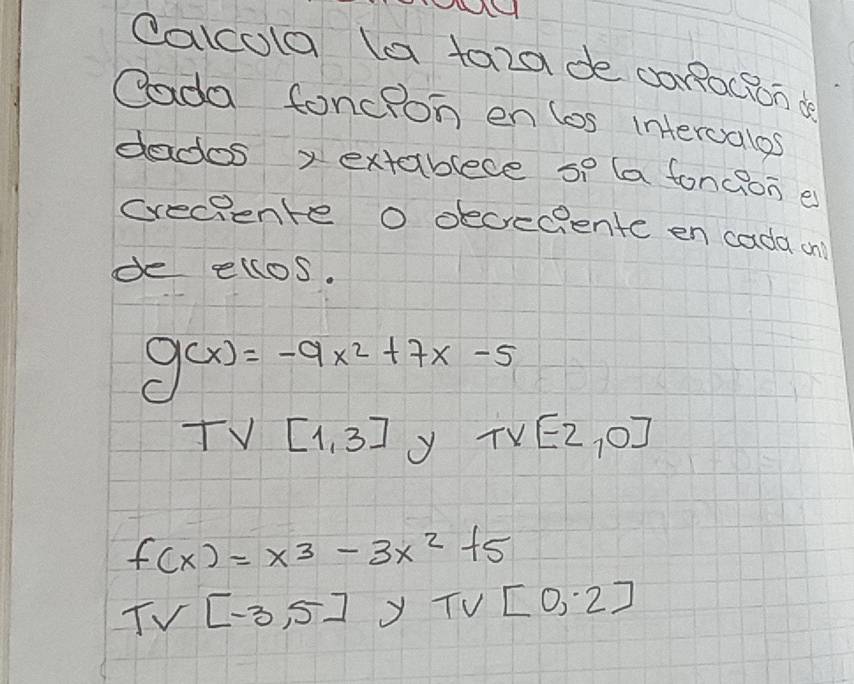 Calcula la taza de variación de
Cada función en los intervalos
dados y extablece si la función es
creciente o decreciente en cada uno
de ellos.
g(x) = -9x² + 7x - 5
TV [1,3] y TV[-2,0]
f(x) = x3 - 3x² + 5
TV [-3,5] y TV [0,-2]